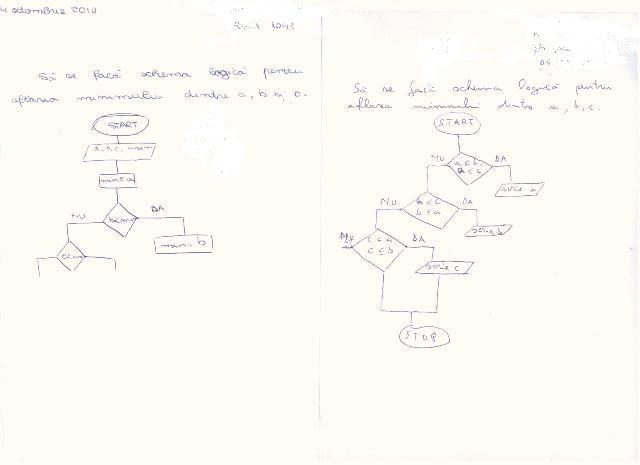 4 octombrie 2010
Să se facă schema logică pentru
aflarea minimului dintre a, b și c.
START
a, b, c, min
min=a
NU
DA
min=b
Să se facă schema logică pentru
aflarea minimului dintre a, b, c.
START
NU
a≤b,
a≤c
DA
scrie a
NU
b≤c
b≤a
DA
scrie b
c≤a
c≤b
DA
scrie c
STOP